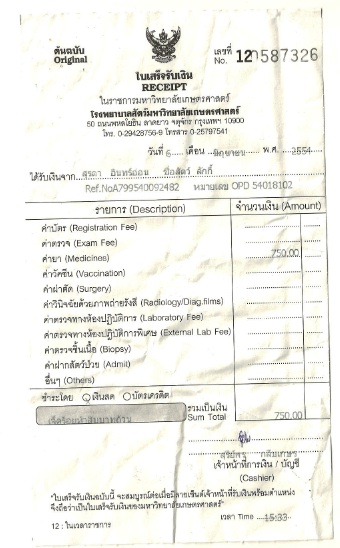 ต้นฉบับ
Original
เลขที่
No. 120587326
ใบเสร็จรับเงิน
RECEIPT
ในราชการมหาวิทยาลัยเกษตรศาสตร์
โรงพยาบาลสัตว์มหาวิทยาลัยเกษตรศาสตร์
50 ถนนพหลโยธิน ลาดยาว จตุจักร กรุงเทพฯ 10900
โทร. 0-29428756-9 โทรสาร 0-25797541
วันที่ 6 เดือน มิถุนายน พ.ศ. 2554
ได้รับเงินจาก สุรดา อินทร์อ่อน ชื่อสัตว์ ลักกี้
Ref.NoA799540092482 หมายเลข OPD 54018102
รายการ (Description) จำนวนเงิน (Amount)
ค่าบัตร (Registration Fee)
ค่าตรวจ (Exam Fee)
ค่ายา (Medicines) 750.00
ค่าวัคซีน (Vaccination)
ค่าผ่าตัด (Surgery)
ค่าวินิจฉัยด้วยภาพถ่ายรังสี (Radiology/Diag.films)
ค่าตรวจทางห้องปฏิบัติการ (Laboratory Fee)
ค่าตรวจทางห้องปฏิบัติการพิเศษ (External Lab Fee)
ค่าตรวจชิ้นเนื้อ (Biopsy)
ค่าฝากสัตว์ป่วย (Admit)
อื่นๆ (Others)
ชำระโดย เงินสด บัตรเครดิต
เจ็ดร้อยห้าสิบบาทถ้วน
รวมเป็นเงิน
Sum Total 750.00
เจ้าหน้าที่การเงิน / บัญชี
(Cashier)
"ใบเสร็จรับเงินฉบับนี้ จะสมบูรณ์ต่อเมื่อมีลายเซ็นต์เจ้าหน้าที่รับเงินพร้อมตำแหน่ง
จึงถือว่าเป็นใบเสร็จรับเงินของมหาวิทยาลัยเกษตรศาสตร์"
เวลา Time 15:33
12 : ในเวลาราชการ